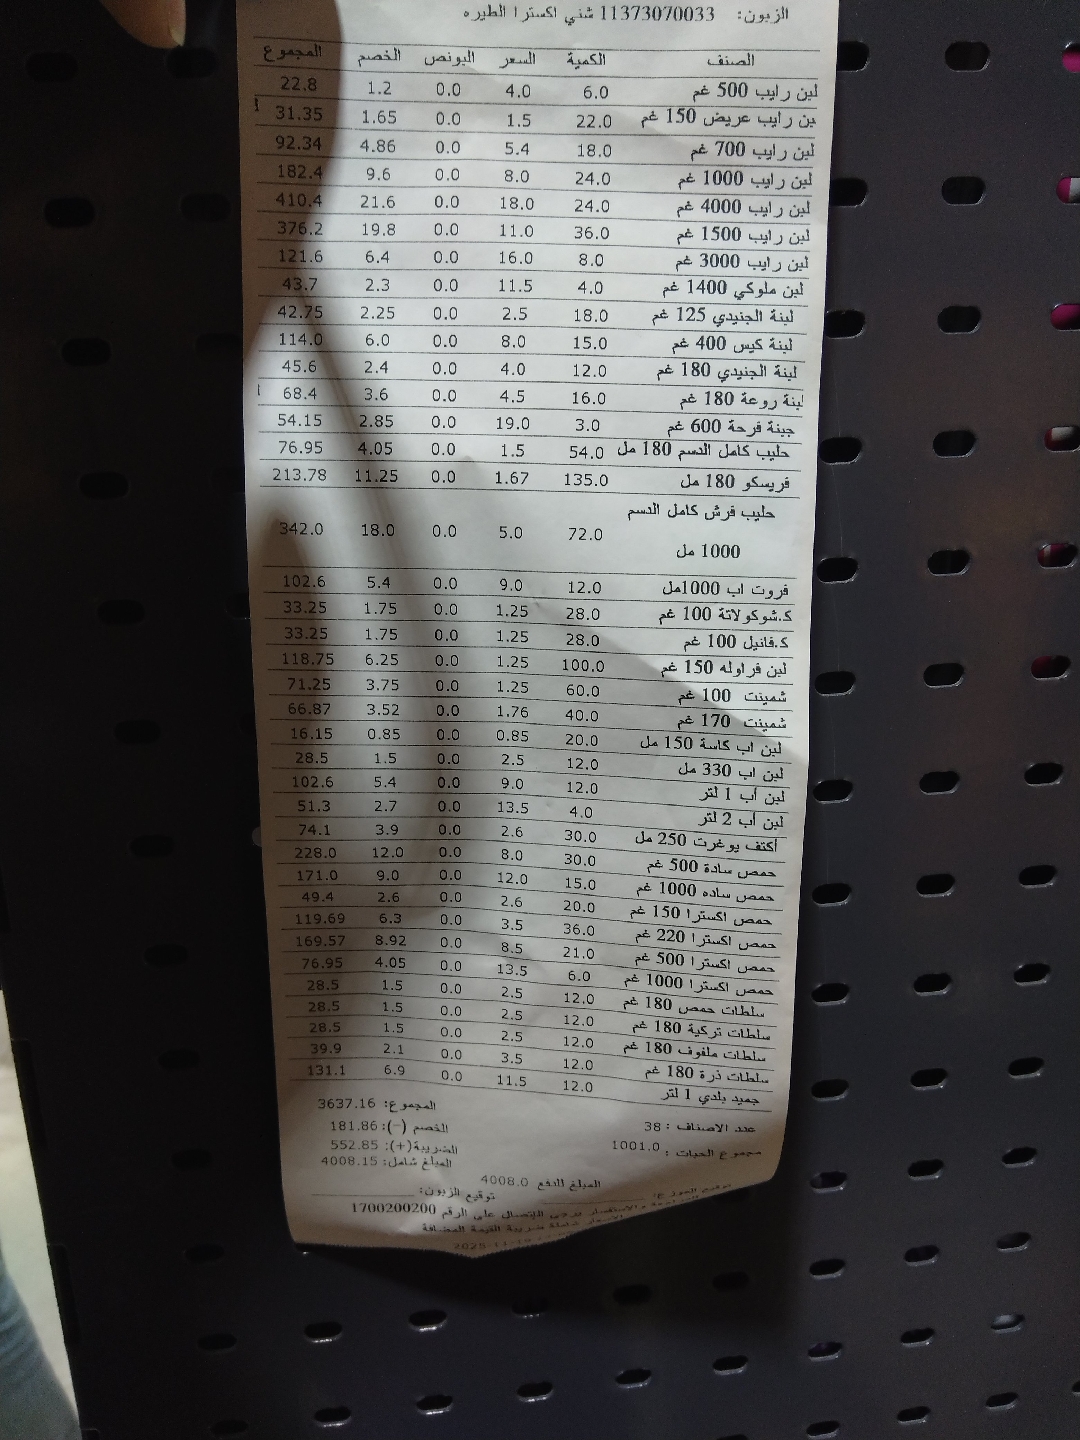 الزبون: 11373070033 شني اكسترا الطيره
الصنف الكمية السعر البونص الخصم المجموع
لبن رايب 500 غم 6.0 4.0 0.0 1.2 22.8
بن رايب عريض 150 غم 22.0 1.5 0.0 1.65 31.35
لبن رايب 700 غم 18.0 5.4 0.0 4.86 92.34
لبن رايب 1000 غم 24.0 8.0 0.0 9.6 182.4
لبن رايب 4000 غم 24.0 18.0 0.0 21.6 410.4
لبن رايب 1500 غم 36.0 11.0 0.0 19.8 376.2
لبن رايب 3000 غم 8.0 16.0 0.0 6.4 121.6
لبن ملوكي 1400 غم 4.0 11.5 0.0 2.3 43.7
لبنة الجنيدي 125 غم 18.0 2.5 0.0 2.25 42.75
لبنة كيس 400 غم 15.0 8.0 0.0 6.0 114.0
لبنة الجنيدي 180 غم 12.0 4.0 0.0 2.4 45.6
لبنة روعة 180 غم 16.0 4.5 0.0 3.6 68.4
جبنة فرحة 600 غم 3.0 19.0 0.0 2.85 54.15
حليب كامل الدسم 180 مل 54.0 1.5 0.0 4.05 76.95
فريسكو 180 مل 135.0 1.67 0.0 11.25 213.78
حليب فرش كامل الدسم
1000 مل 72.0 5.0 0.0 18.0 342.0
فروت اب 1000مل 12.0 9.0 0.0 5.4 102.6
ك.شوكولاتة 100 غم 28.0 1.25 0.0 1.75 33.25
ك.فانيل 100 غم 28.0 1.25 0.0 1.75 33.25
لبن فراوله 150 غم 100.0 1.25 0.0 6.25 118.75
شمينت 100 غم 60.0 1.25 0.0 3.75 71.25
شمينت 170 غم 40.0 1.76 0.0 3.52 66.87
لبن اب كاسة 150 مل 20.0 0.85 0.0 0.85 16.15
لبن اب 330 مل 12.0 2.5 0.0 1.5 28.5
لبن أب 1 لتر 12.0 9.0 0.0 5.4 102.6
لبن أب 2 لتر 4.0 13.5 0.0 2.7 51.3
أكتف يوغرت 250 مل 30.0 2.6 0.0 3.9 74.1
حمص سادة 500 غم 30.0 8.0 0.0 12.0 228.0
حمص ساده 1000 غم 15.0 12.0 0.0 9.0 171.0
حمص اكسترا 150 غم 20.0 2.6 0.0 2.6 49.4
حمص اكسترا 220 غم 36.0 3.5 0.0 6.3 119.69
حمص اكسترا 500 غم 21.0 8.5 0.0 8.92 169.57
حمص اكسترا 1000 غم 6.0 13.5 0.0 4.05 76.95
سلطات حمص 180 غم 12.0 2.5 0.0 1.5 28.5
سلطات تركية 180 غم 12.0 2.5 0.0 1.5 28.5
سلطات ملفوف 180 غم 12.0 2.5 0.0 1.5 28.5
سلطات ذرة 180 غم 12.0 3.5 0.0 2.1 39.9
جميد بلدي 1 لتر 12.0 11.5 0.0 6.9 131.1
المجموع: 3637.16
عدد الاصناف : 38 الخصم (-): 181.86
مجموع الحبات : 1001.0 الضريبة(+): 552.85
المبلغ شامل: 4008.15
المبلغ للدفع 4008.0
توقيع الزبون:
والاستفسار يرجى الاتصال على الرقم 1700200200
ضريبة القيمة المضافة